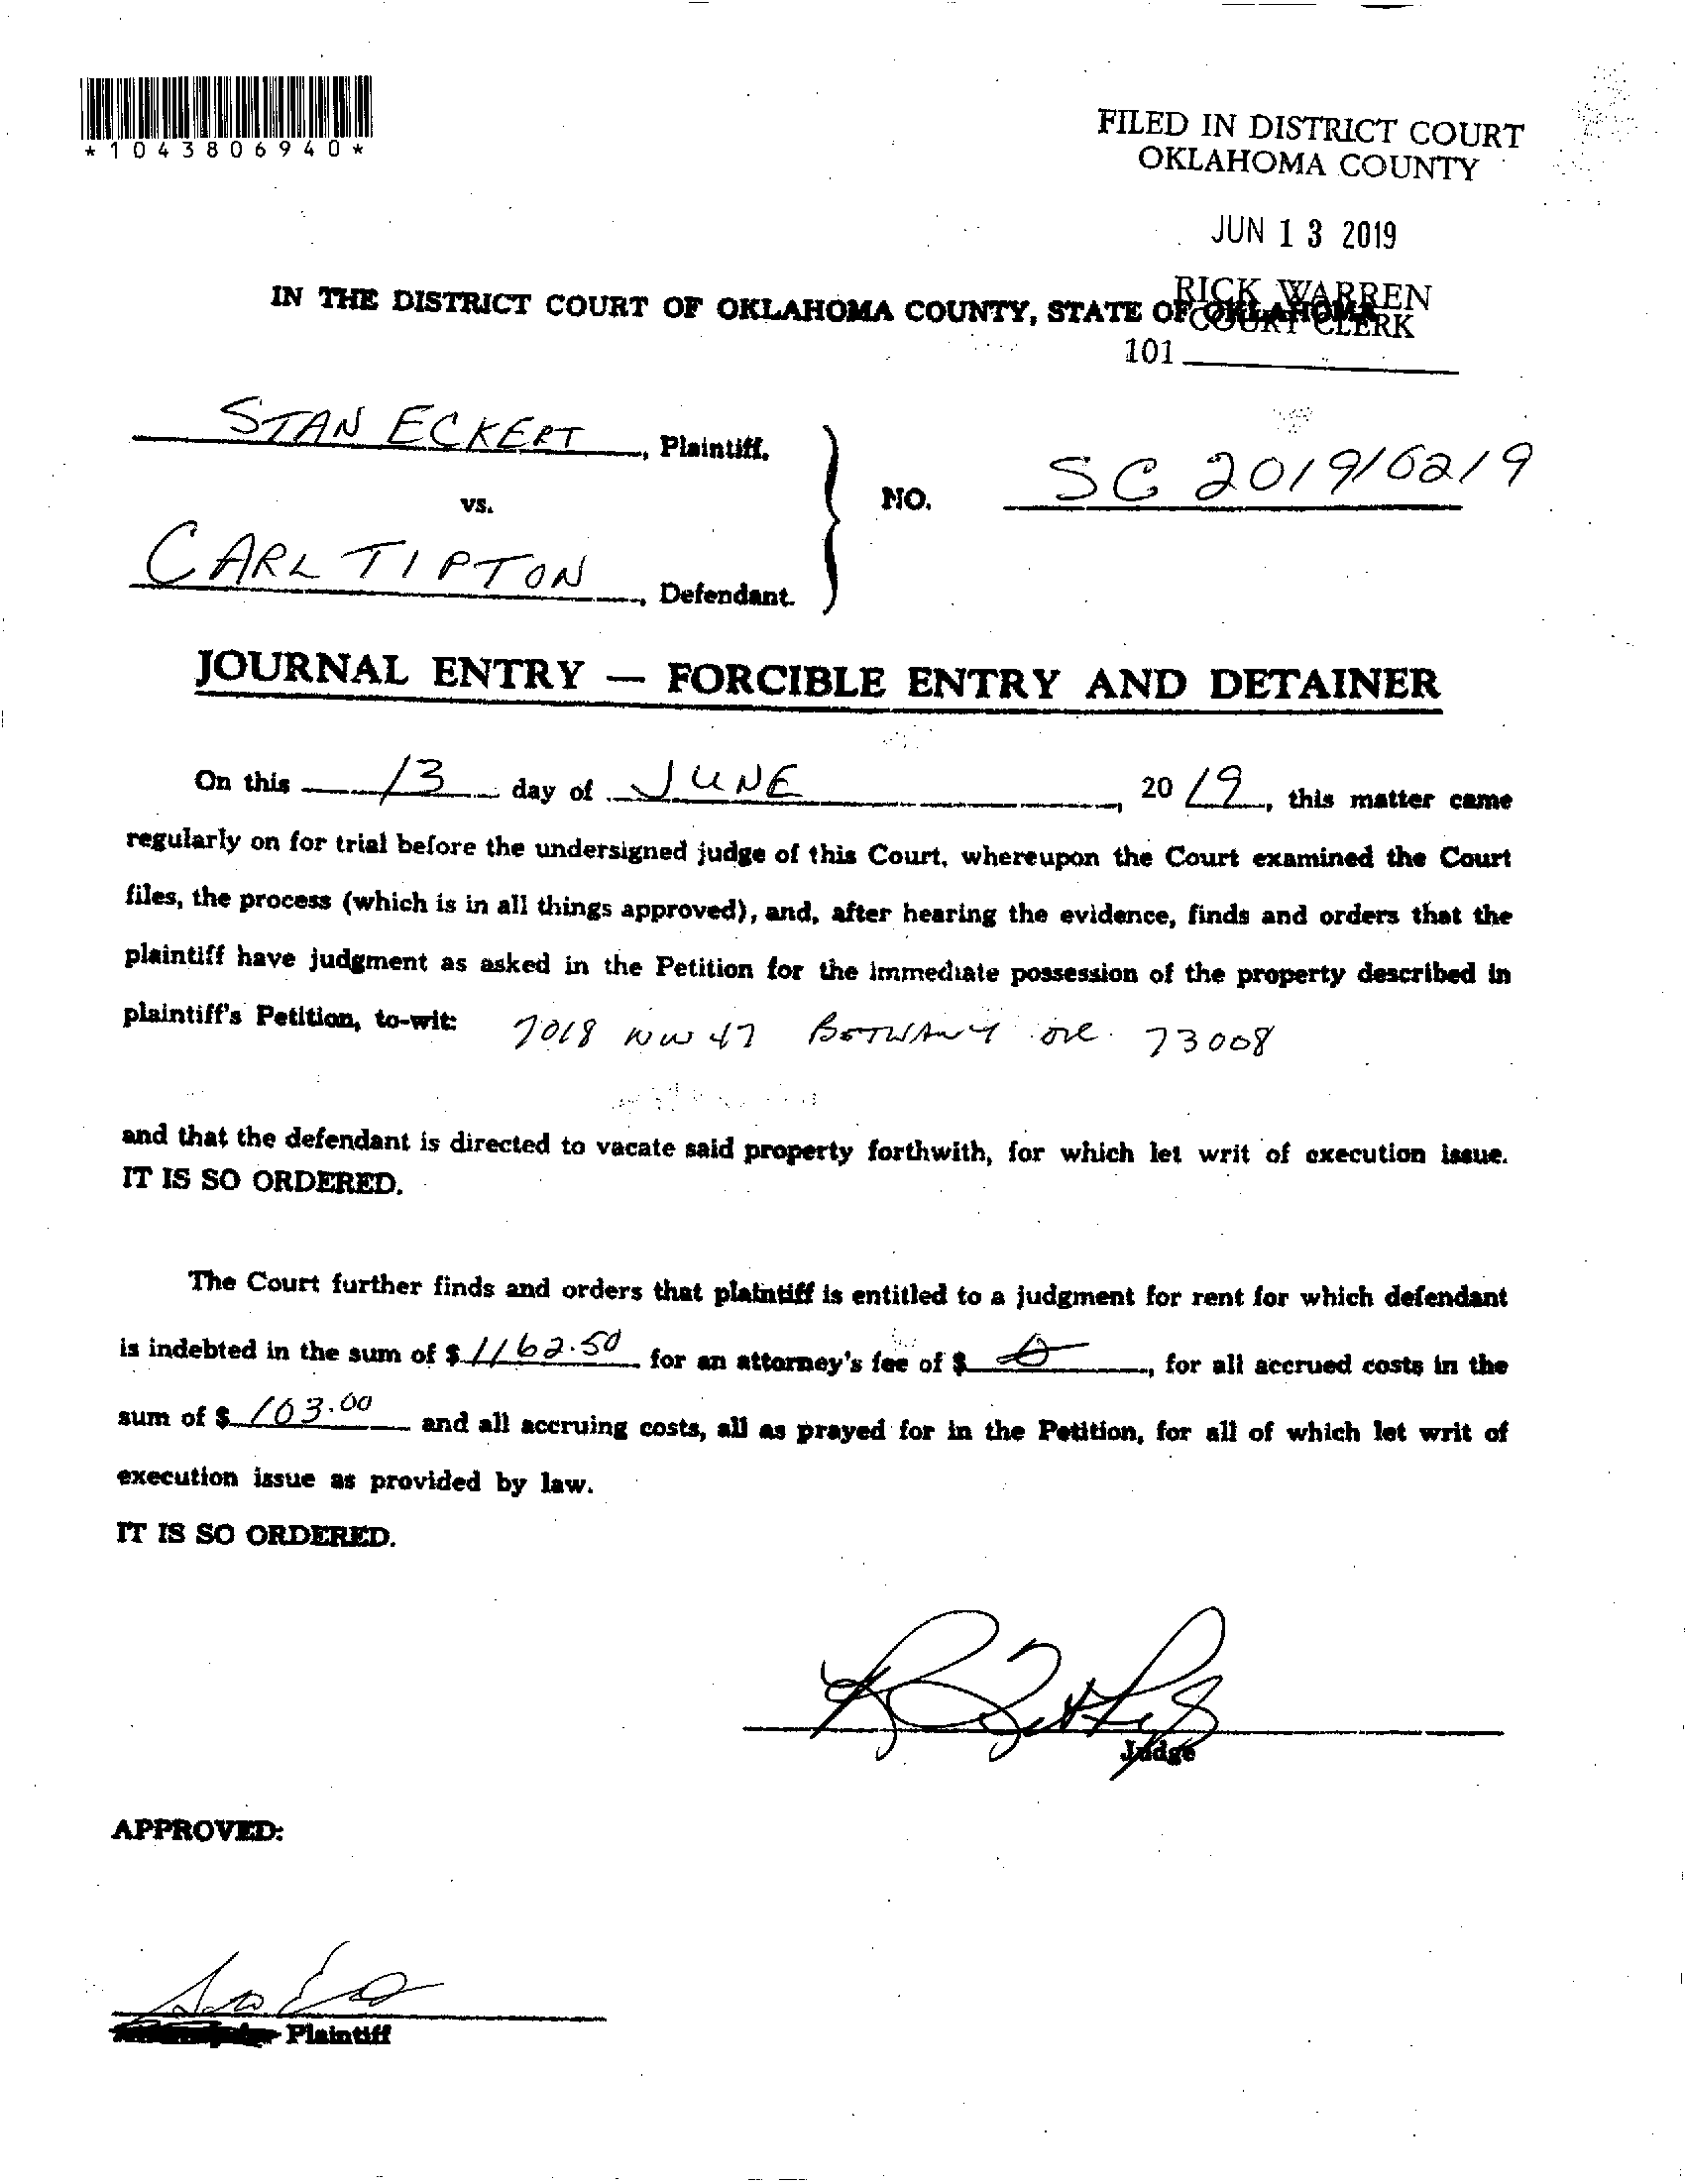 *1043806940*
FILED IN DISTRICT COURT
OKLAHOMA COUNTY
JUN 13 2019
RICK WARREN
COURT CLERK
101
IN THE DISTRICT COURT OF OKLAHOMA COUNTY, STATE OF OKLAHOMA
STAN ECKERT, Plaintiff,
vs.
NO. SC 2019/6219
CARL TIPTON, Defendant.
JOURNAL ENTRY — FORCIBLE ENTRY AND DETAINER
On this 13 day of JUNE, 20 19, this matter came
regularly on for trial before the undersigned judge of this Court, whereupon the Court examined the Court
files, the process (which is in all things approved), and, after hearing the evidence, finds and orders that the
plaintiff have judgment as asked in the Petition for the immediate possession of the property described in
plaintiff's Petition, to-wit: 7018 NW 47 BETHANY OK. 73008
and that the defendant is directed to vacate said property forthwith, for which let writ of execution issue.
IT IS SO ORDERED.
The Court further finds and orders that plaintiff is entitled to a judgment for rent for which defendant
is indebted in the sum of $ 1162.50 for an attorney's fee of $ 0, for all accrued costs in the
sum of $ 103.00 and all accruing costs, all as prayed for in the Petition, for all of which let writ of
execution issue as provided by law.
IT IS SO ORDERED.
Judge
APPROVED:
Plaintiff